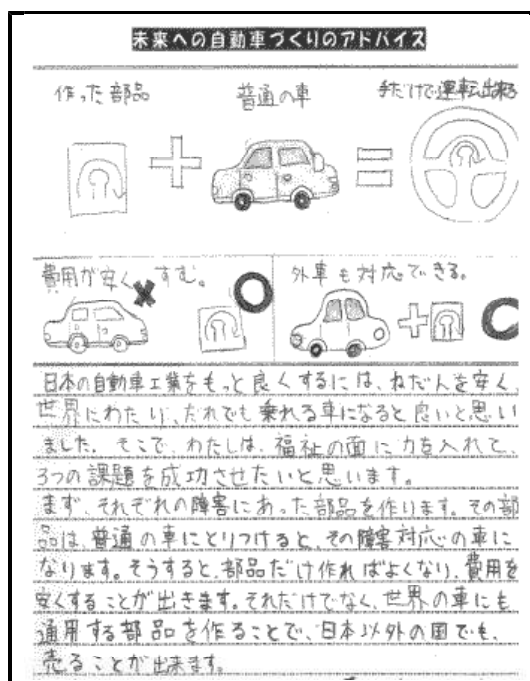 未来への自動車づくりのアドバイス
作った部品
普通の車
手だけで運転出来る
費用が安くすむ。
外車も対応できる。
日本の自動車工業をもっと良くするには、ねだんを安く、
世界にわたり、だれでも乗れる車になると良いと思い
ました。そこで、わたしは、福祉の面に力を入れて、
3つの課題を成功させたいと思います。
まず、それぞれの障害にあった部品を作ります。その部
品は、普通の車にとりつけると、その障害対応の車に
なります。そうすると、部品だけ作ればよくなり、費用を
安くすることが出きます。それだけでなく、世界の車にも
通用する部品を作ることで、日本以外の国でも、
売ることが出来ます。